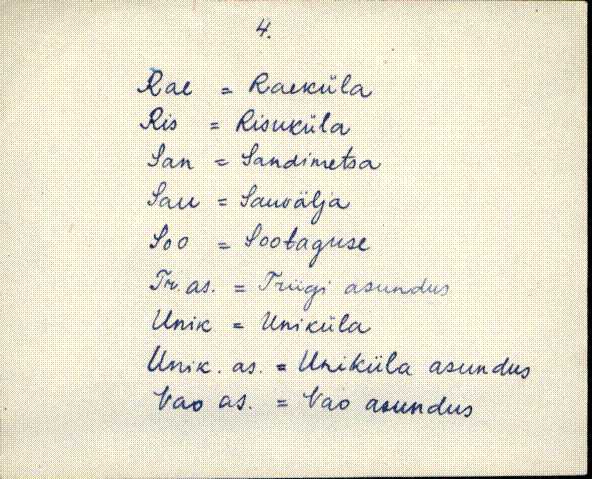 4.
Rae = Raeküla
Ris = Risuküla
San = Sandimetsa
Sau = Sauvälja
Soo = Sootaguse
Tr. as. = Triigi asundus
Unik = Uniküla
Unik. as. = Uniküla asundus
Vao as. = Vao asundus